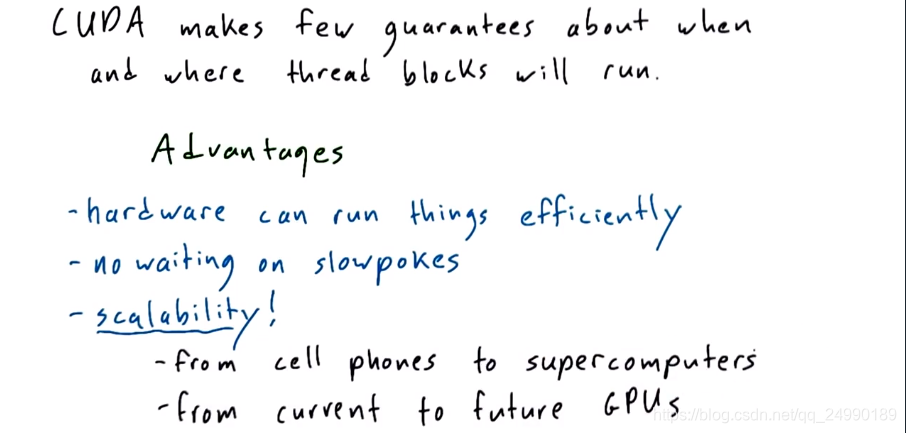 CUDA makes few guarantees about when
and where thread blocks will run.
Advantages
- hardware can run things efficiently
- no waiting on slowpokes
- scalability!
- from cell phones to supercomputers
- from current to future GPUs
https://blog.csdn.net/qq_24990189